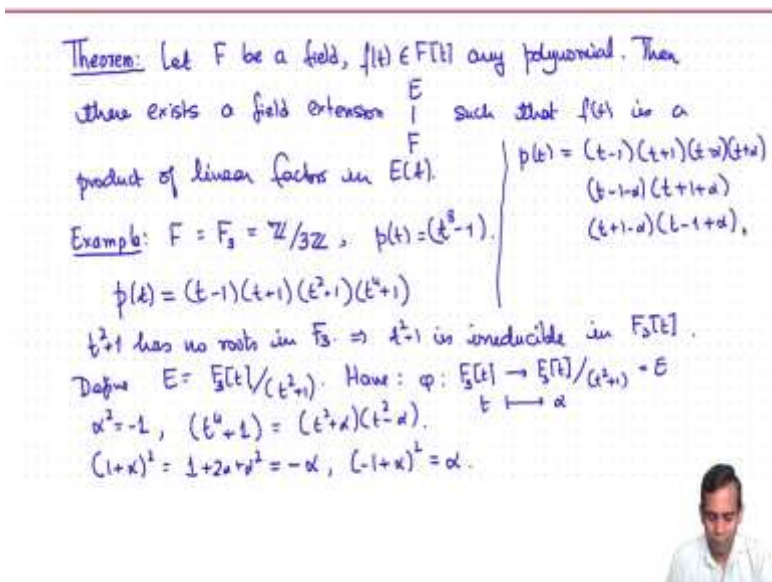 Theorem: Let F be a field, f(t) ∈ F[t] any polynomial. Then
there exists a field extension E | F such that f(t) is a
product of linear factors in E(t).
Example: F = F₃ = ℤ/3ℤ, p(t) = (t⁸-1).
p(t) = (t-1)(t+1)(t²+1)(t⁴+1)
t²+1 has no roots in F₃. ⇒ t²+1 is irreducible in F₃[t].
Define E = F₃[t]/(t²+1). Have: φ: F₃[t] → F₃[t]/(t²+1) = E
t ⟼ α
α² = -1, (t⁴+1) = (t²+α)(t²-α).
(1+α)² = 1+2α+α² = -α, (-1+α)² = α.
p(t) = (t-1)(t+1)(t-α)(t+α)
(t-1-α)(t+1+α)
(t+1-α)(t-1+α).